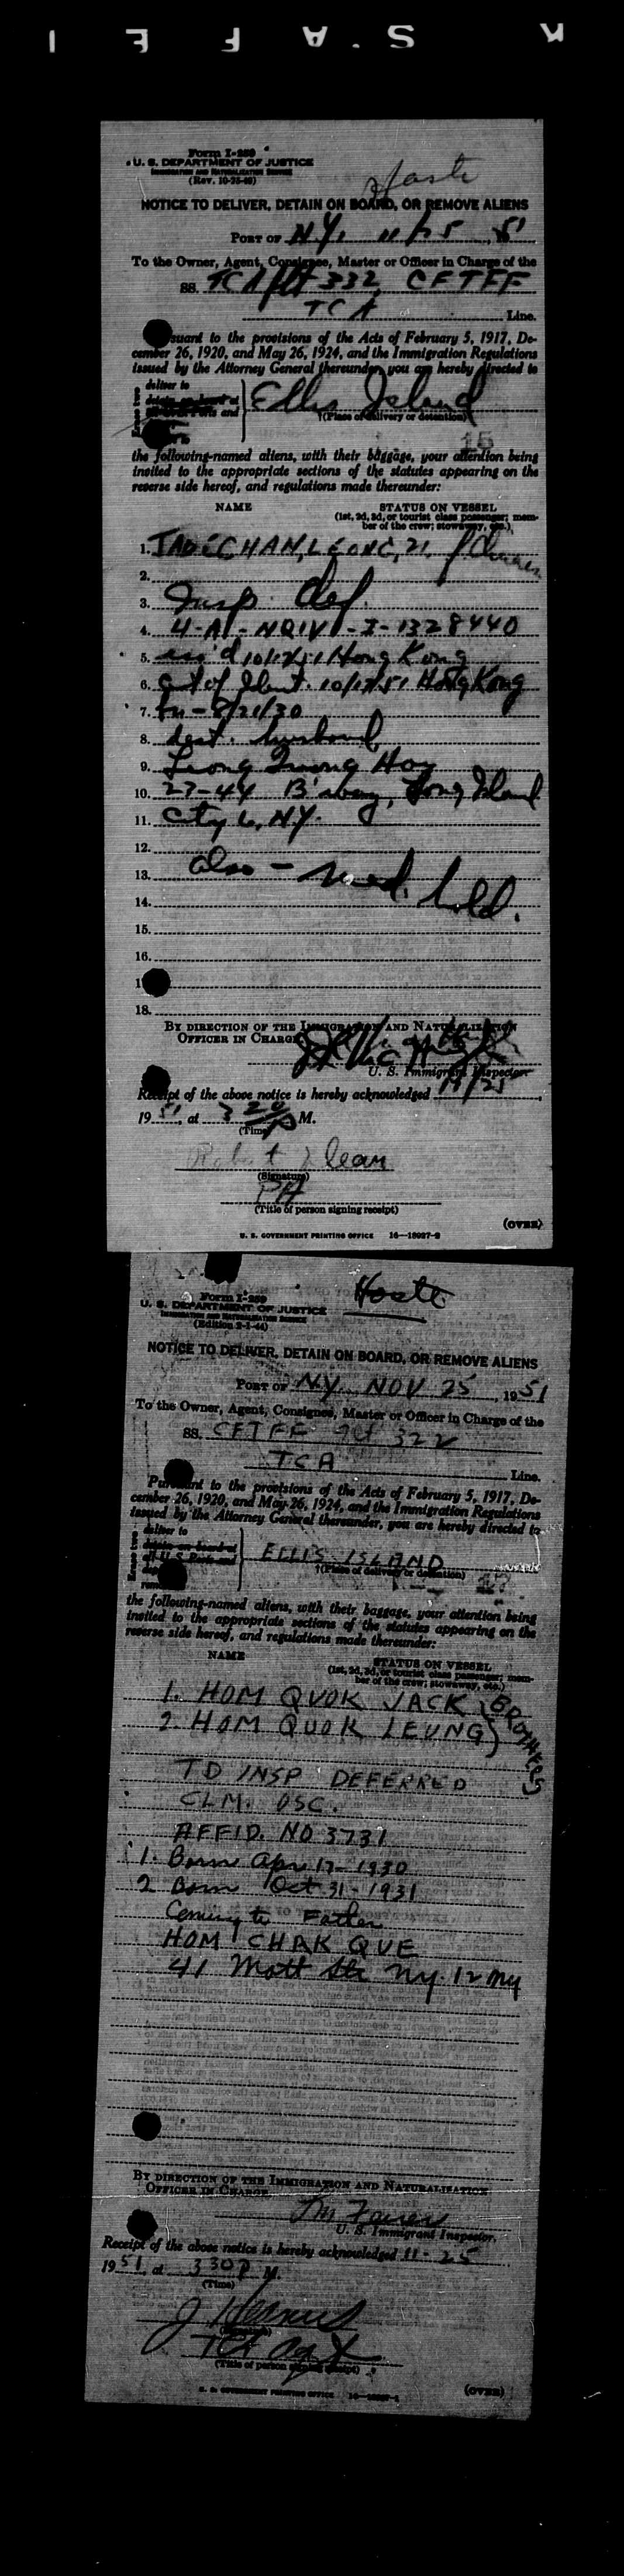 K S A F E I
Form I-259
U. S. DEPARTMENT OF JUSTICE
IMMIGRATION AND NATURALIZATION SERVICE
(Rev. 10-25-49)
NOTICE TO DELIVER, DETAIN ON BOARD, OR REMOVE ALIENS
PORT OF N.Y. 11/25, 51
To the Owner, Agent, Consignee, Master or Officer in Charge of the
SS. TCA flt 332 CFTFF
TCA Line.
suant to the provisions of the Acts of February 5, 1917, De-
cember 26, 1920, and May 26, 1924, and the Immigration Regulations
issued by the Attorney General thereunder, you are hereby directed to
deliver to
detain on board at
and
Erase two
Ellis Island
†(Place of delivery or detention)
15
the following-named aliens, with their baggage, your attention being
invited to the appropriate sections of the statutes appearing on the
reverse side hereof, and regulations made thereunder:
NAME STATUS ON VESSEL
(1st, 2d, 3d, or tourist class passenger; mem-
ber of the crew; stowaway, etc.)
1. CHAN, LEONG, 21, f
2.
3. Insp. def.
4. 4-A1-NQIV-I-1328440
5. iss'd Hong Kong
6. Hong Kong
7. 8/21/30
8. dest. husband
9. Leong Hoy
10. 27-44 B'way, Long Island
11. City 6, N.Y.
12.
13. also - med. hold.
14.
15.
16.
1
18.
BY DIRECTION OF THE IMMIGRATION AND NATURALIZATION
OFFICER IN CHARGE
U. S. Immigrant Inspector
Receipt of the above notice is hereby acknowledged 11/25,
19 51, at 3 20 P M.
(Time)
(Signature)
PA
(Title of person signing receipt)
(OVER)
U. S. GOVERNMENT PRINTING OFFICE 16—18027-2
Form I-259
U. S. DEPARTMENT OF JUSTICE
IMMIGRATION AND NATURALIZATION SERVICE
(Edition 2-1-44)
NOTICE TO DELIVER, DETAIN ON BOARD, OR REMOVE ALIENS
PORT OF N.Y. NOV 25, 1951
To the Owner, Agent, Consignee, Master or Officer in Charge of the
SS. CFTFF flt 322
TCA Line.
Pursuant to the provisions of the Acts of February 5, 1917, De-
cember 26, 1920, and May 26, 1924, and the Immigration Regulations
issued by the Attorney General thereunder, you are hereby directed to
deliver to
detain on board at
all U.S. Ports and
Erase two
ELLIS ISLAND
†(Place of delivery or detention)
the following-named aliens, with their baggage, your attention being
invited to the appropriate sections of the statutes appearing on the
reverse side hereof, and regulations made thereunder:
NAME STATUS ON VESSEL
(1st, 2d, 3d, or tourist class passenger; mem-
ber of the crew; stowaway, etc.)
1. HOM QUOK JACK
2. HOM QUOK LEUNG
BROTHERS
TD INSP DEFERRED
CLM. USC.
AFFID. NO 3731
1. Born Apr 17-1930
2 Born Oct 31-1931
Coming to Father
HOM CHAK QUE
41 Mott Str N.Y. 12 NY
BY DIRECTION OF THE IMMIGRATION AND NATURALIZATION
OFFICER IN CHARGE
U. S. Immigrant Inspector.
Receipt of the above notice is hereby acknowledged 11-25
1951, at 330 P M.
(Time)
(Signature)
(Title of person signing receipt)
(OVER)
U. S. GOVERNMENT PRINTING OFFICE 16—18027-1